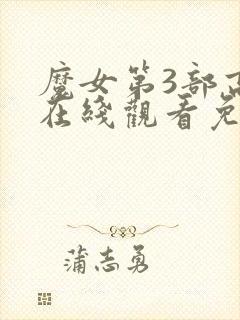 魔女第3部高
在綫觀看免
蒲志勇